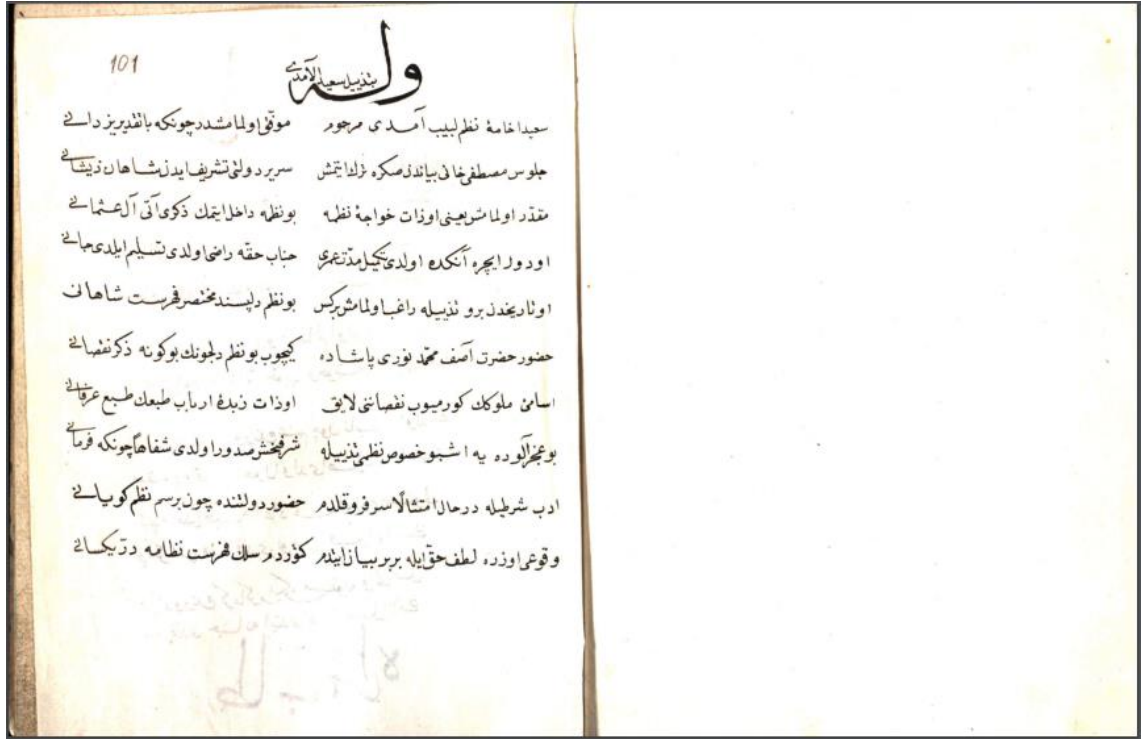 101
وله
بتذييل سعيد الآمدي
سعيدا خامهٔ نظم لبيب آمدى مرحوم موفق اولمامشدر چونكه باتقدير يزدانى
جلوس مصطفى خانى بياندن صكره ترك ايتمش سرير دولتى تشريف ايدن شاهان ذيشانى
مقدر اولمامش يعنى اوذات خواجهٔ نظمه بونظمه داخل ايتمك ذكرى آتى آل عثمانى
اودور ايچره آنكده اولدى تكميل مدت عمرى جناب حقه راضى اولدى تسليم ايلدى جانى
اوتاريخدن برو تذييله راغب اولمامش بركس بونظم دلپسند مختصر فهرست شاهانى
حضور حضرت آصف محمد نورى پاشاده كيچوب بونظم دلجونك بوكونه ذكر نقصانى
اسامئ ملوكك كورميوب نقصاننى لايق اوذات زبدهٔ ارباب طبعك طبع عرفانى
بوعجز آلوده يه اشبو خصوص نظمى تذييله شرفبخش صدور اولدى شفاهًا چونكه فرمانى
ادب شرطيله درحال امتثالًا سرفرو قلدم حضور دولتنده چون برسم نظم كويانى
وقوعى اوزره لطف حق ايله بربر بيان ايتدم كتوردم سلك فهرست نظامه در يكسانى